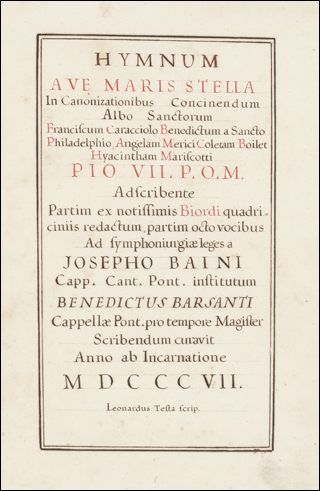 HYMNUM
AVE MARIS STELLA
In Canonizationibus Concinendum
Albo Sanctorum
Franciscum Caracciolo Benedictum a Sancto
Philadelphio Angelam Merici Coletam Boilet
Hyacintham Mariscotti
PIO VII. P.O.M.
Adscribente
Partim ex notiſſimis Biordi quadri⸗
ciniis redactum, partim octo vocibus
Ad ſymphoniurgiæ leges a
JOSEPHO BAINI
Capp. Cant. Pont. inſtitutum
BENEDICTUS BARSANTI
Cappellæ Pont. pro tempore Magiſter
Scribendum curavit
Anno ab Incarnatione
MDCCCVII.
Leonardus Teſta ſcrip.